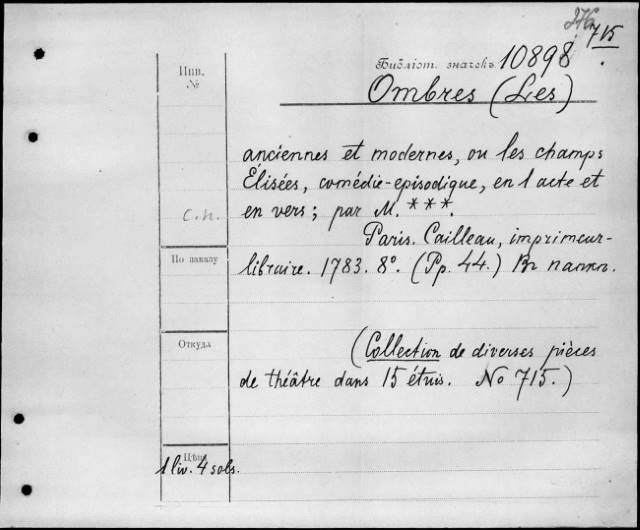 376
715
Инв.
№
Библіот. значокъ 10898
Ombres (Les)
anciennes et modernes, ou les champs
Élisées, comédie-episodique, en 1 acte et
en vers; par M. ***.
с.п.
Paris. Cailleau, imprimeur-
libraire. 1783. 8°. (Pp. 44.) Въ папкѣ.
По заказу
Откуда
(Collection de diverses pièces
de théâtre dans 15 étuis. No 715.)
Цѣна
1 liv. 4 sols.